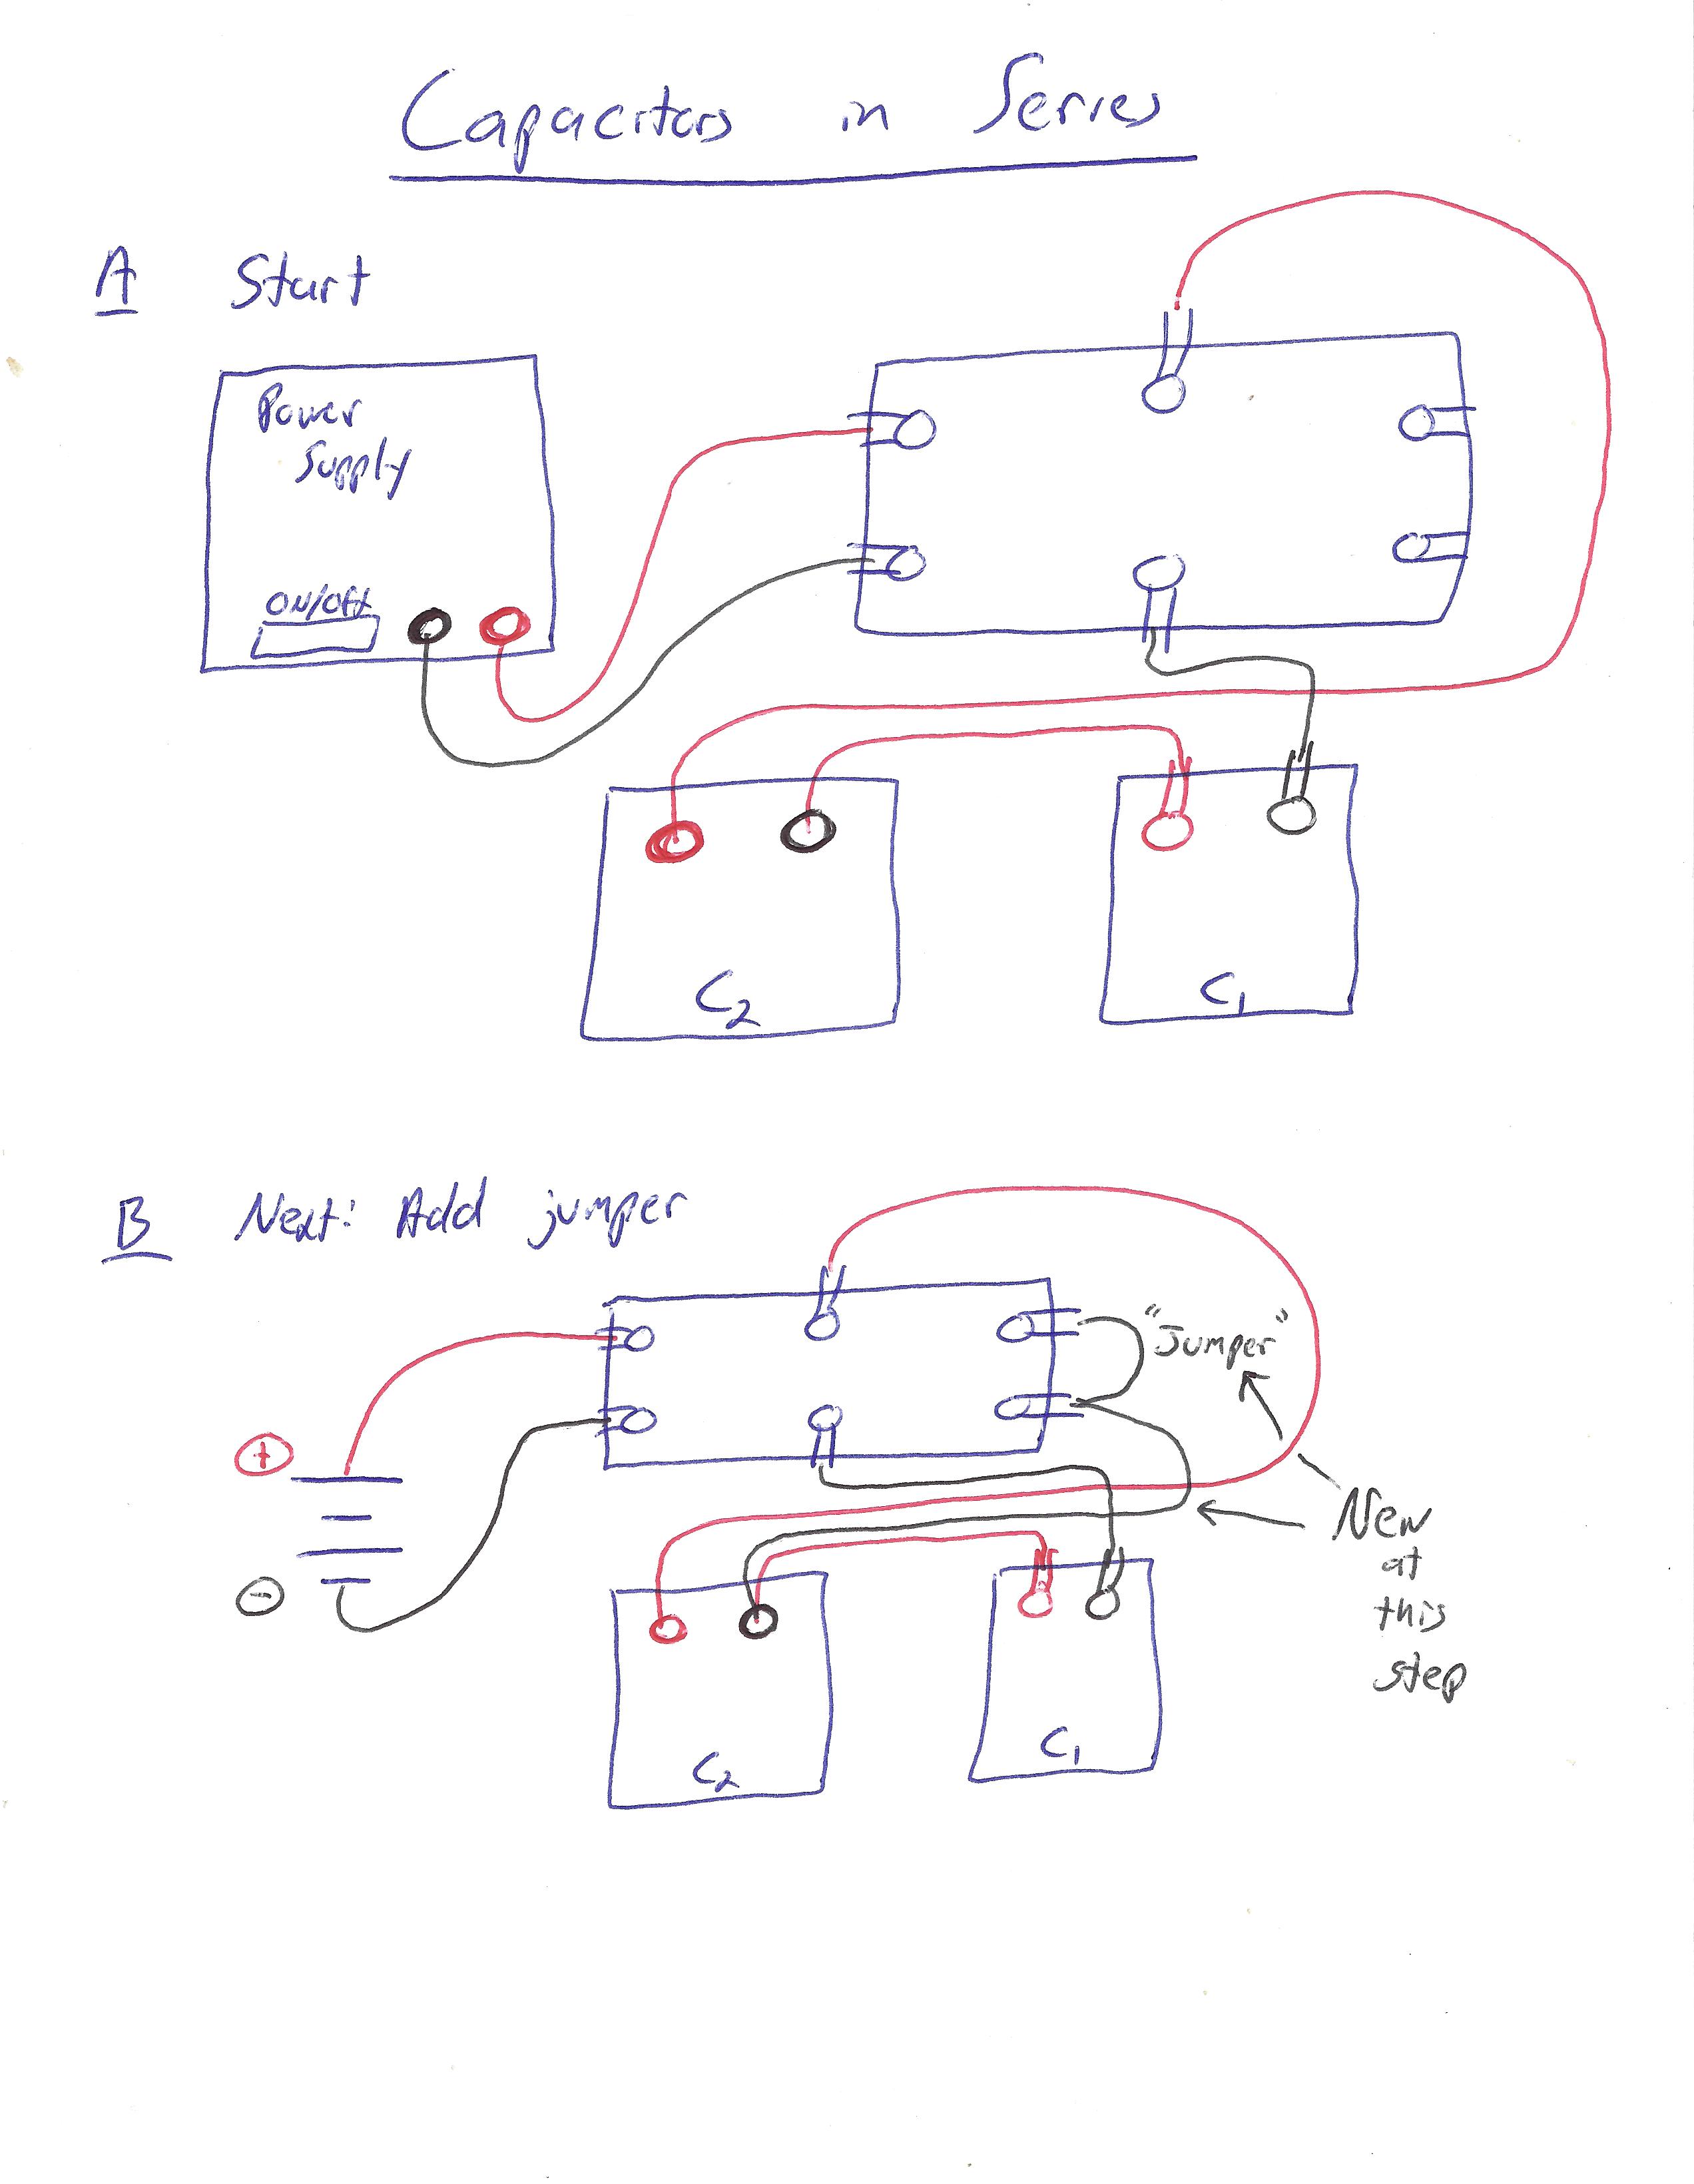 Capacitors in Series
A Start
Power
Supply
ON/OFF
C2
C1
B Next: Add jumper
"Jumper"
+
-
New
at
this
step
C2
C1